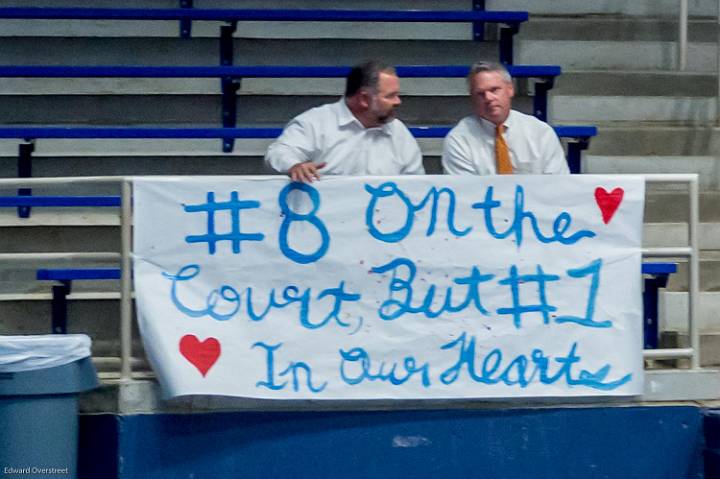 #8 On the
Court, But #1
In Our Hearts
Edward Overstreet